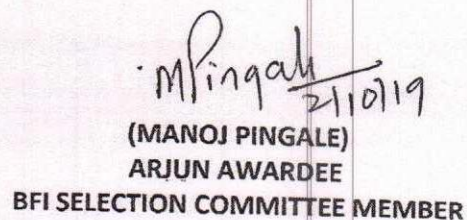 MPingale
2/10/19
(MANOJ PINGALE)
ARJUN AWARDEE
BFI SELECTION COMMITTEE MEMBER